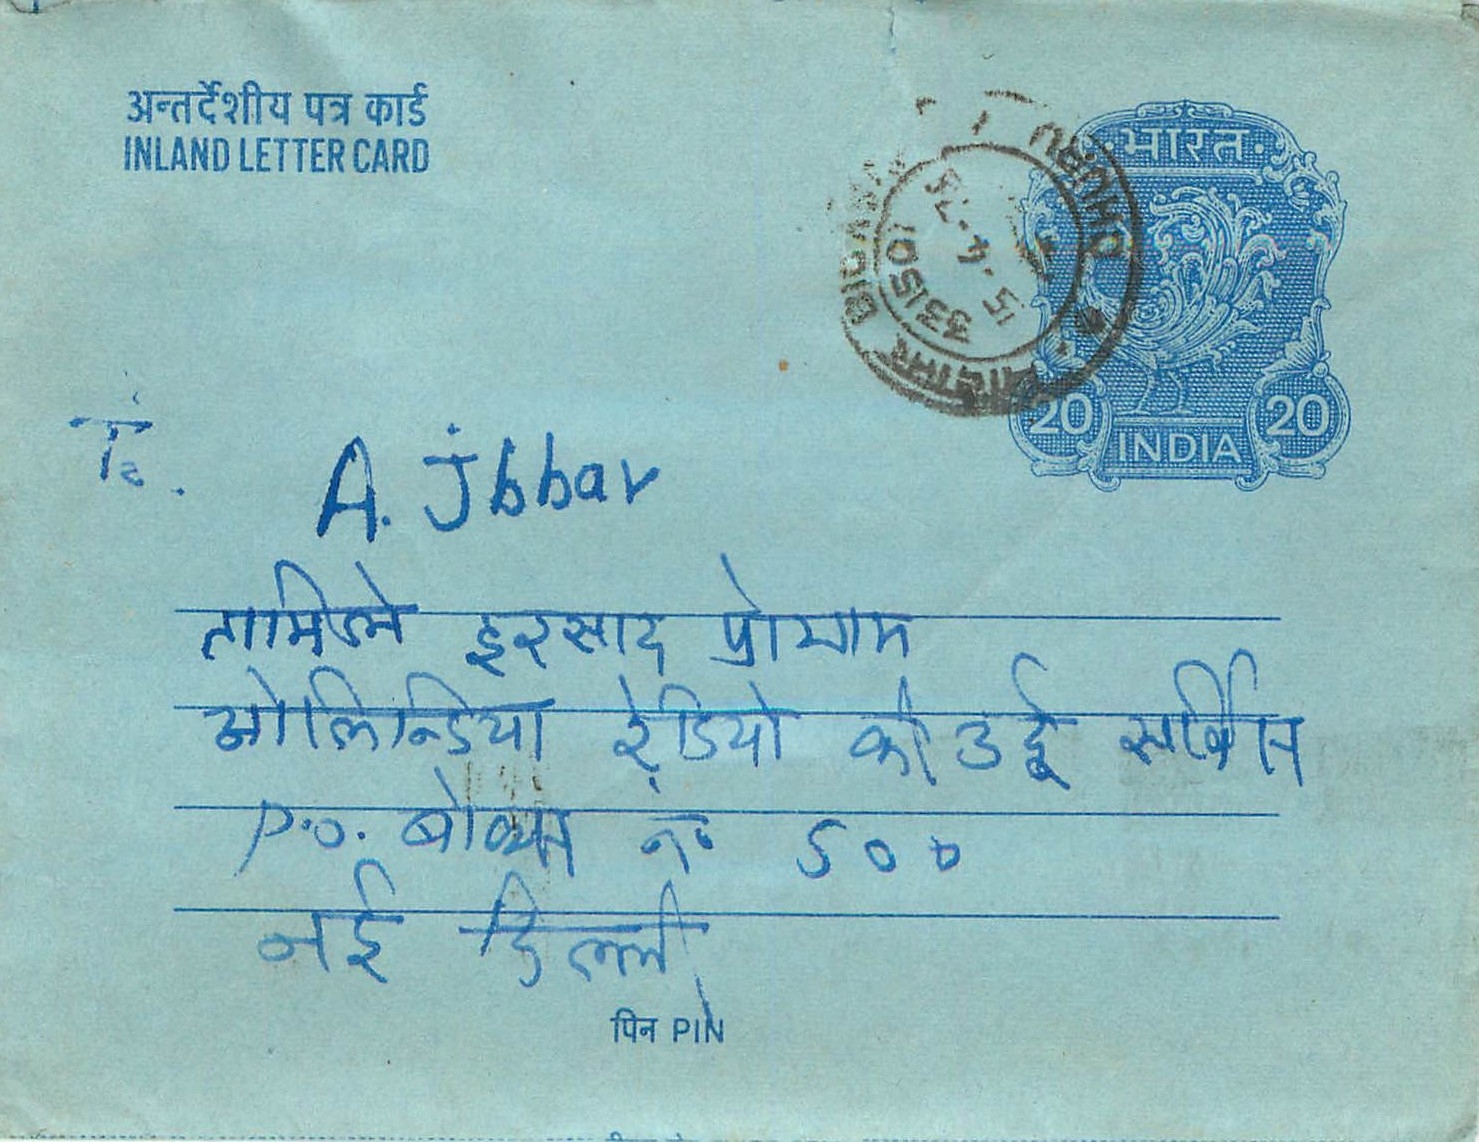 अन्तर्देशीय पत्र कार्ड
INLAND LETTER CARD
भारत
20 20
INDIA
331501
5.4.75
To.
A. Jbbar
तामिलमे इरसाद प्रोग्राम
ओलिन्डिया रेडियो की उर्दू सर्विस
P.O. बोक्स न० 500
नई दिल्ली
पिन PIN